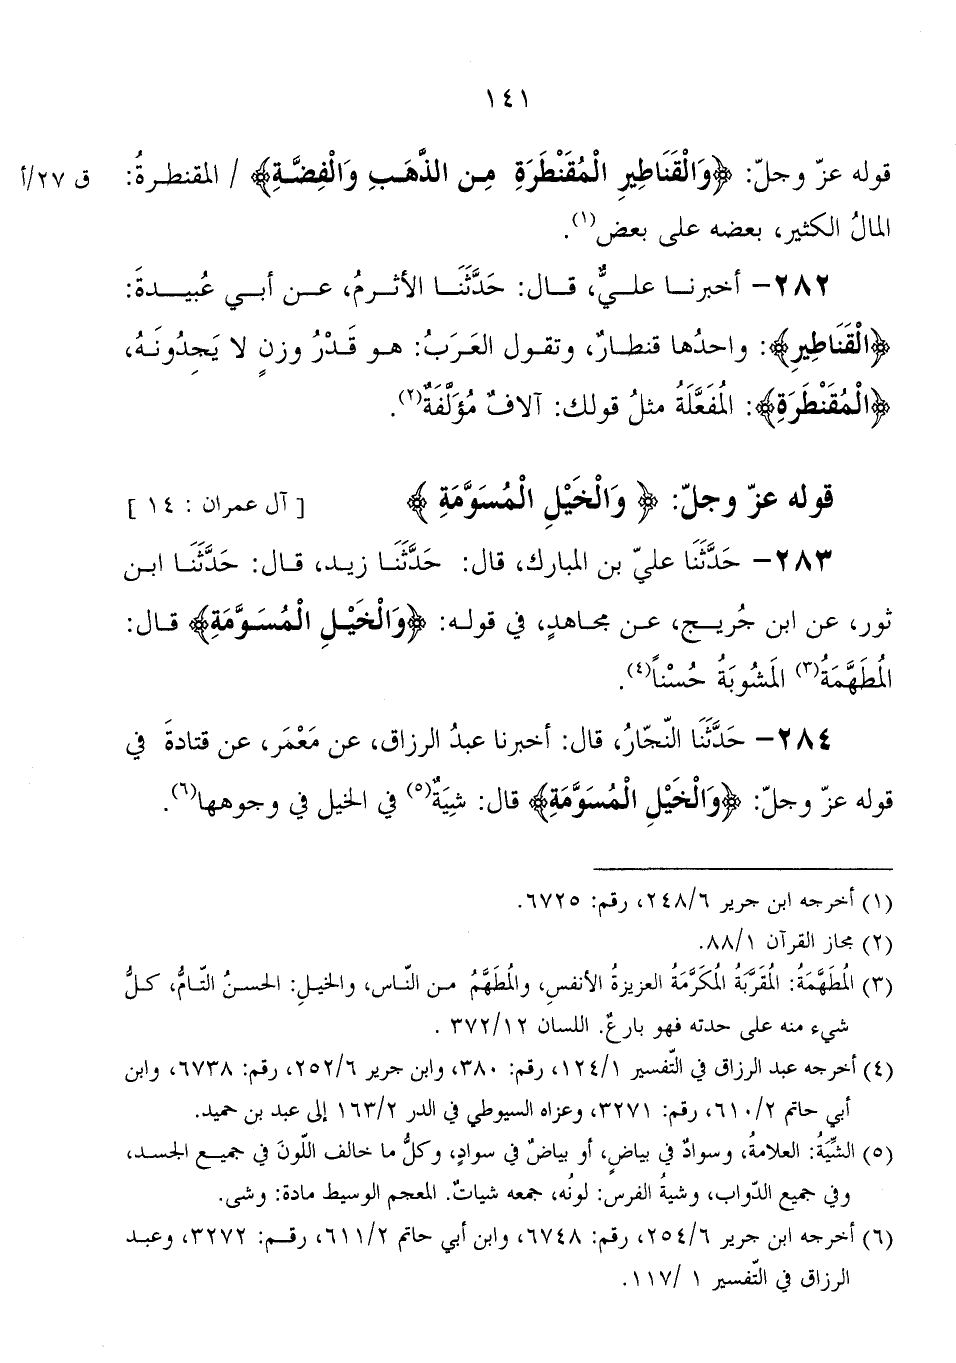 ١٤١
قوله عزّ وجلّ: ﴿وَالْقَنَاطِيرِ الْمُقَنْطَرَةِ مِن الذَّهَبِ وَالْفِضَّةِ﴾ / المقنطرةُ: ق ٢٧/أ
المالُ الكثير، بعضه على بعض(١).
٢٨٢- أخبرنا عليٌّ، قال: حَدَّثَنَا الأثرمُ، عن أبي عُبيدةَ:
﴿الْقَنَاطِيرِ﴾: واحدُها قنطارٌ، وتقول العَرَبُ: هو قَدْرُ وزنٍ لا يَجِدُونَهُ،
﴿الْمُقَنْطَرَةِ﴾: المُفَعَّلَةُ مثلُ قولك: آلافٌ مُؤَلَّفَةٌ(٢).
قوله عزّ وجلّ: ﴿ وَالْخَيْلِ الْمُسَوَّمَةِ ﴾ [ آل عمران : ١٤ ]
٢٨٣- حَدَّثَنَا عليّ بن المبارك، قال: حَدَّثَنَا زيد، قال: حَدَّثَنَا ابن
ثور، عن ابن جُريج، عن مجاهدٍ، في قوله: ﴿وَالْخَيْلِ الْمُسَوَّمَةِ﴾ قال:
المُطَهَّمَةُ(٣) المَشُوبَةُ حُسْناً(٤).
٢٨٤- حَدَّثَنَا النّجّارُ، قال: أخبرنا عبدُ الرزاق، عن مَعْمَر، عن قتادةَ في
قوله عزّ وجلّ: ﴿وَالْخَيْلِ الْمُسَوَّمَةِ﴾ قال: شِيَةٌ(٥) في الخيل في وجوهها(٦).
(١) أخرجه ابن جرير ٢٤٨/٦، رقم: ٦٧٢٥.
(٢) مجاز القرآن ٨٨/١.
(٣) المُطَهَّمَةُ: المُقَرَّبَةُ المُكَرَّمَةُ العزيزةُ الأنفسِ، والمُطَهَّمُ من النّاس، والخيلِ: الحسنُ التّامُّ، كلُّ
شيء منه على حدته فهو بارعٌ. اللسان ٣٧٢/١٢ .
(٤) أخرجه عبد الرزاق في التّفسير ١٢٤/١، رقم: ٣٨٠، وابن جرير ٢٥٢/٦، رقم: ٦٧٣٨، وابن
أبي حاتم ٦١٠/٢، رقم: ٣٢٧١، وعزاه السيوطي في الدر ١٦٣/٢ إلى عبد بن حميد.
(٥) الشِّيَةُ: العلامةُ، وسوادٌ في بياضٍ، أو بياضٌ في سوادٍ، وكلُّ ما خالف اللّونَ في جميع الجسد،
وفي جميع الدّواب، وشيةُ الفرس: لونُه، جمعه شياتٌ. المعجم الوسيط مادة: وشى.
(٦) أخرجه ابن جرير ٢٥٤/٦، رقم: ٦٧٤٨، وابن أبي حاتم ٦١١/٢، رقم: ٣٢٧٢، وعبد
الرزاق في التّفسير ١ /١١٧.